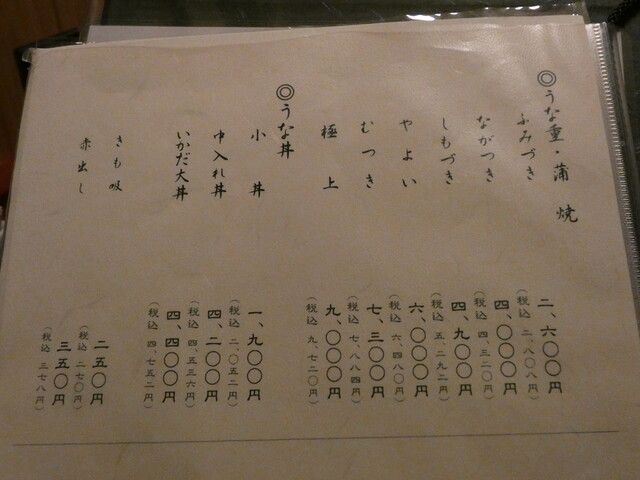 ◎うな重・蒲焼
ふみづき 二、六〇〇円
（税込 二、八〇八円）
ながつき 四、〇〇〇円
（税込 四、三二〇円）
しもづき 四、九〇〇円
（税込 五、二九二円）
やよい 六、〇〇〇円
（税込 六、四八〇円）
むつき 七、三〇〇円
（税込 七、八八四円）
極上 九、〇〇〇円
（税込 九、七二〇円）
◎うな丼
小丼 一、九〇〇円
（税込 二、〇五二円）
中入れ丼 四、二〇〇円
（税込 四、五三六円）
いかだ大丼 四、四〇〇円
（税込 四、七五二円）
きも吸 二五〇円
（税込 二七〇円）
赤出し 三五〇円
（税込 三七八円）